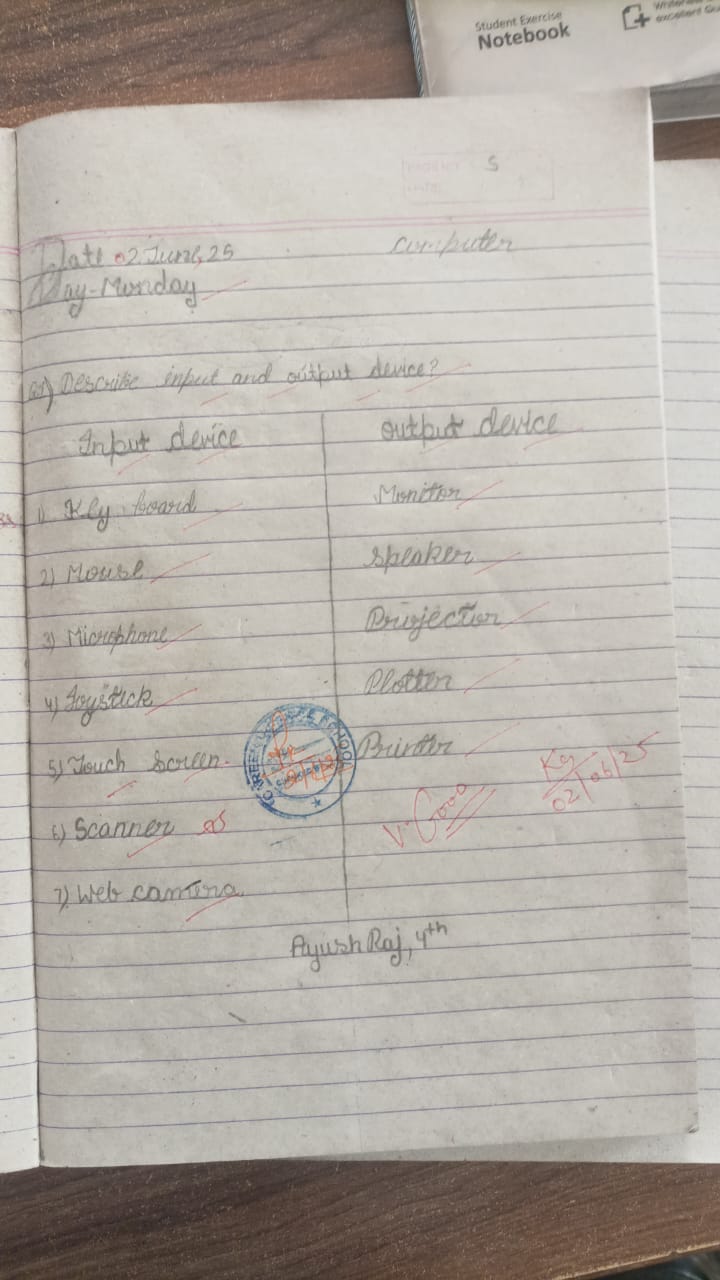 Student Exercise
Notebook
5
Date 02 June, 25 computer
Day-Monday
Q1) Describe input and output device?
Input device output device
1) Key board Monitor
2) Mouse speaker
3) Microphone Projector
4) Joystick Plotter
5) Touch screen. Printer
6) Scanner
7) Web camera
V. Good
02/06/25
Ayush Raj, 4th